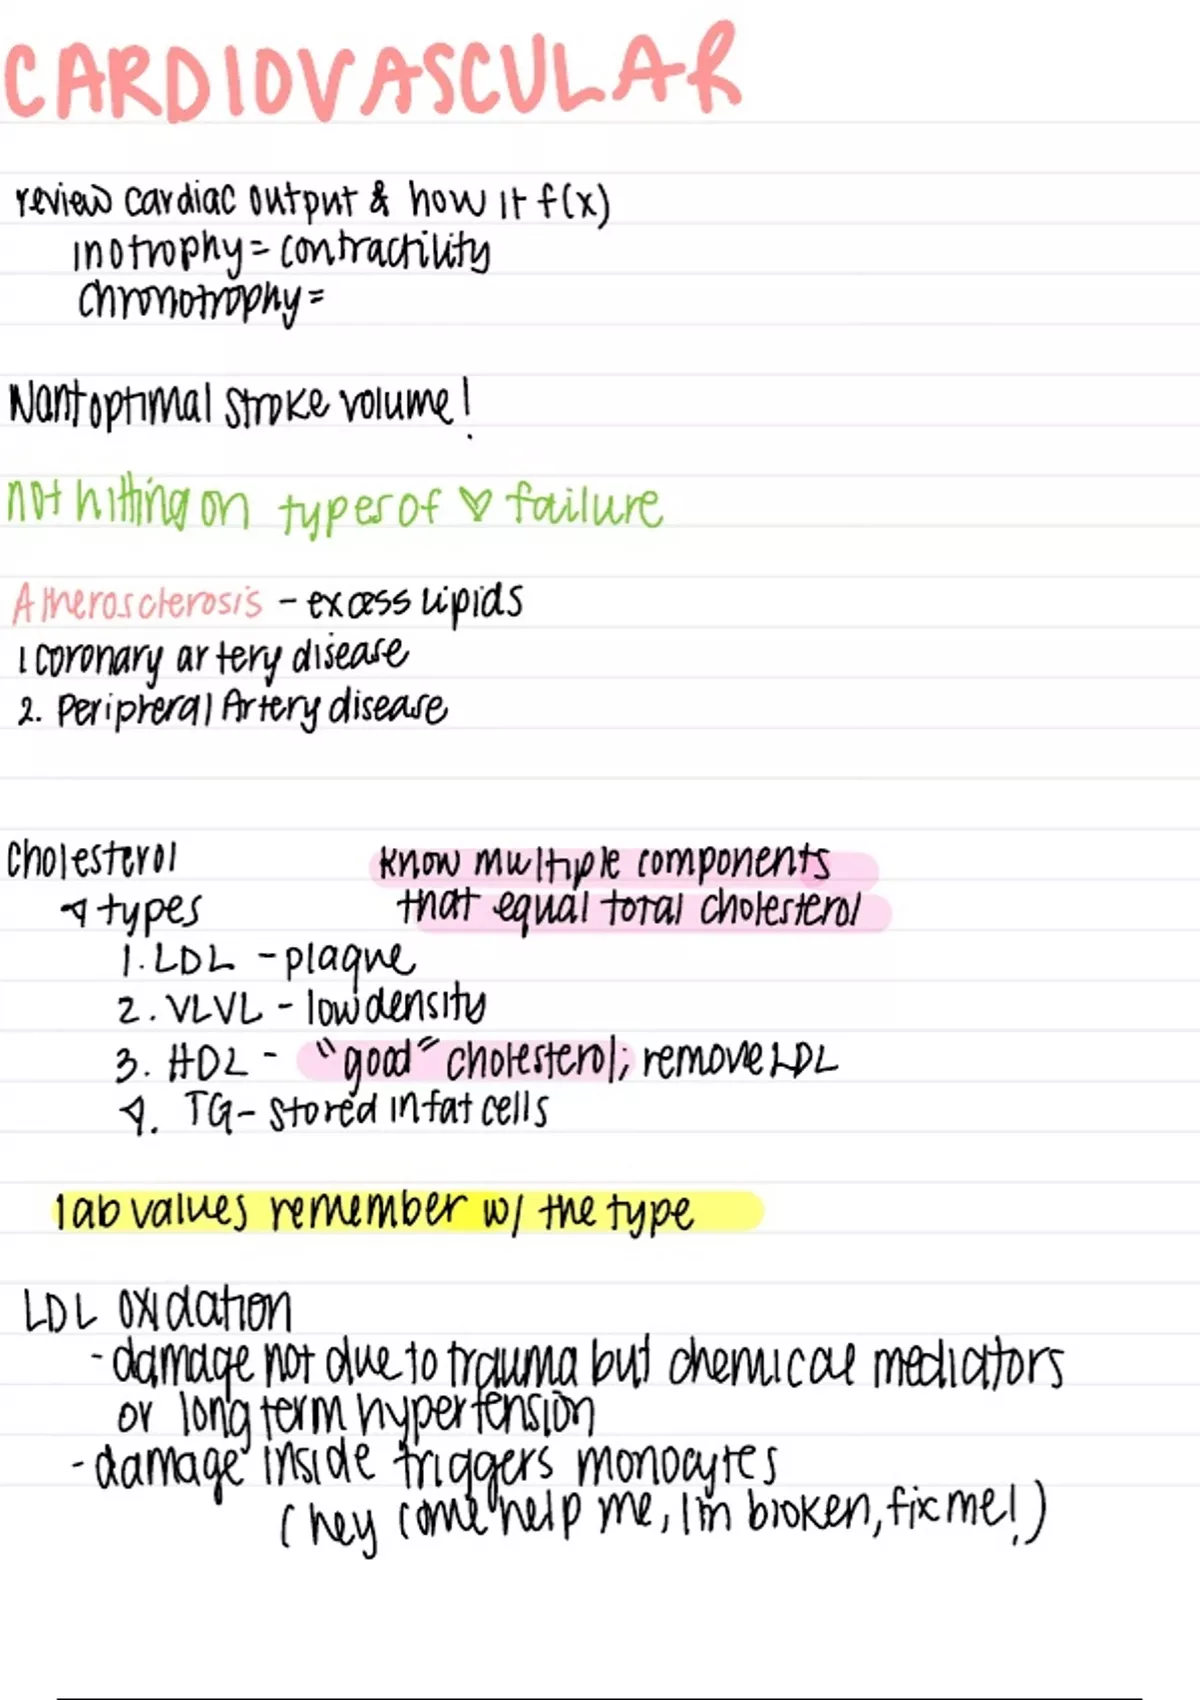 CARDIOVASCULAR
review cardiac output & how it f(x)
inotrophy = contractility
chronotrophy =
Want optimal stroke volume!
not hitting on types of ♡ failure
Atherosclerosis - excess lipids
1 coronary artery disease
2. Peripheral Artery disease
cholesterol
4 types
know multiple components
that equal total cholesterol
1. LDL - plaque
2. VLVL - low density
3. HDL - "good" cholesterol; remove LDL
4. TG - stored in fat cells
lab values remember w/ the type
LDL oxidation
- damage not due to trauma but chemical mediators
or long term hypertension
- damage inside triggers monocytes
(hey come help me, I'm broken, fix me!)